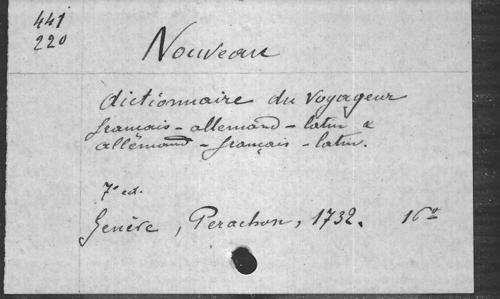 441
220
Nouveau
dictionnaire du voyageur
français - allemand - latin &
allemand - français - latin.
7e ed.
Genève, Perachon, 1732. 16o